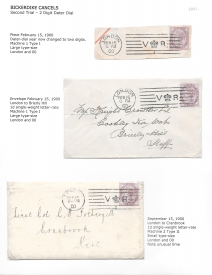 BICKERDIKE CANCELS
Second Trial – 2 Digit Dater Dial
Piece February 15, 1900
Dater-die year now changed to two digits.
Machine 1 Type I
Large type-size
London and 00
V R
Envelope February 15, 1900
London to Brierly Hill
1d single-weight letter-rate
Machine 1 Type I
Large type-size
London and 00
V R
Brierley Hill
Staffs
September 15, 1900
London to Cranbrook
1d single-weight letter-rate
Machine 2 Type II
Small type-size
London and 00
Note unusual time
V R
Cranbrook
Kent